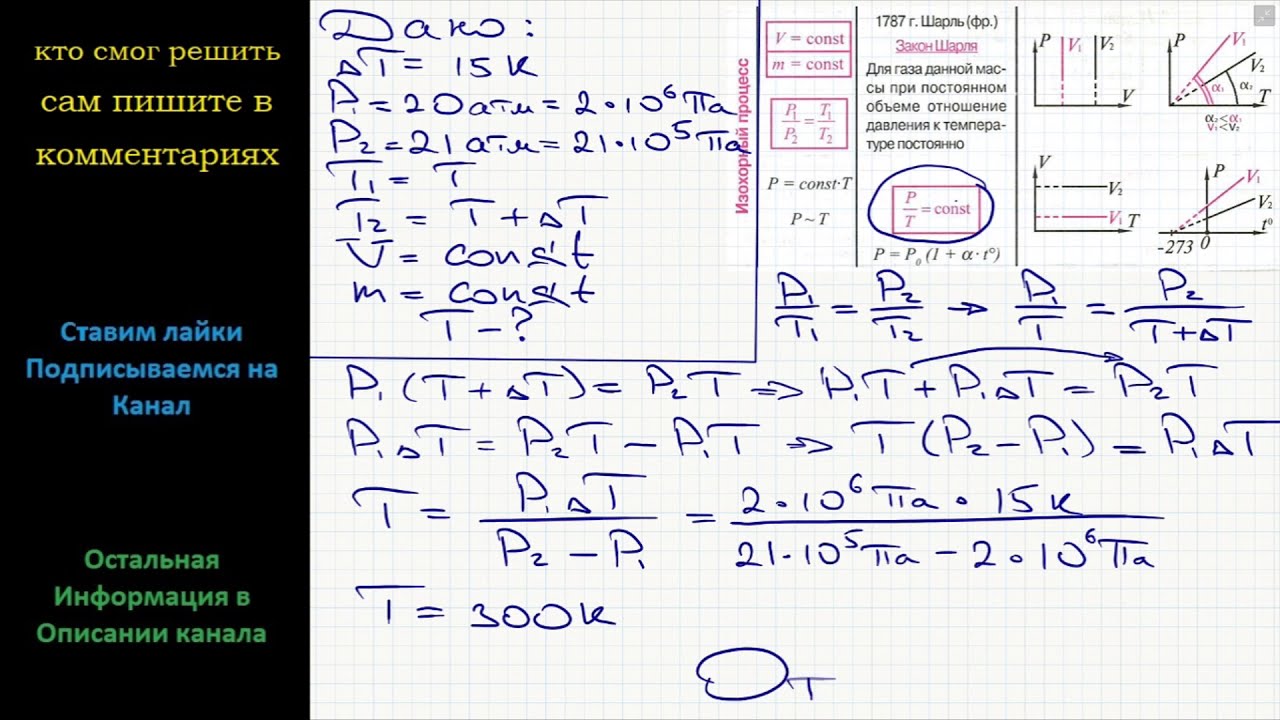 кто смог решить
сам пишите в
комментариях
Ставим лайки
Подписываемся на
Канал
Остальная
Информация в
Описании канала
Дано:
ΔT = 15 К
P₁ = 20 атм = 2·10⁶ Па
P₂ = 21 атм = 21·10⁵ Па
T₁ = T
T₂ = T + ΔT
V = const
m = const
T – ?
Изохорный процесс
V = const
m = const
P₁/P₂ = T₁/T₂
P = const·T
P ~ T
1787 г. Шарль (фр.)
Закон Шарля
Для газа данной мас-
сы при постоянном
объеме отношение
давления к темпера-
туре постоянно
P/T = const
P = P₀ (1 + α · t°)
P V₁ V₂
V
P V₁
V₂
α₁ α₂
T
α₂<α₁
V₁<V₂
V
V₂
V₁ T
P V₁
V₂
-273 0 t⁰
P₁/T₁ = P₂/T₂ → P₁/T = P₂/(T + ΔT)
P₁(T + ΔT) = P₂T ⇒ P₁T + P₁ΔT = P₂T
P₁ΔT = P₂T – P₁T ⇒ T(P₂ – P₁) = P₁ΔT
T = P₁ΔT/(P₂ – P₁) = 2·10⁶ Па · 15 К/(21·10⁵ Па – 2·10⁶ Па)
T = 300 К
От